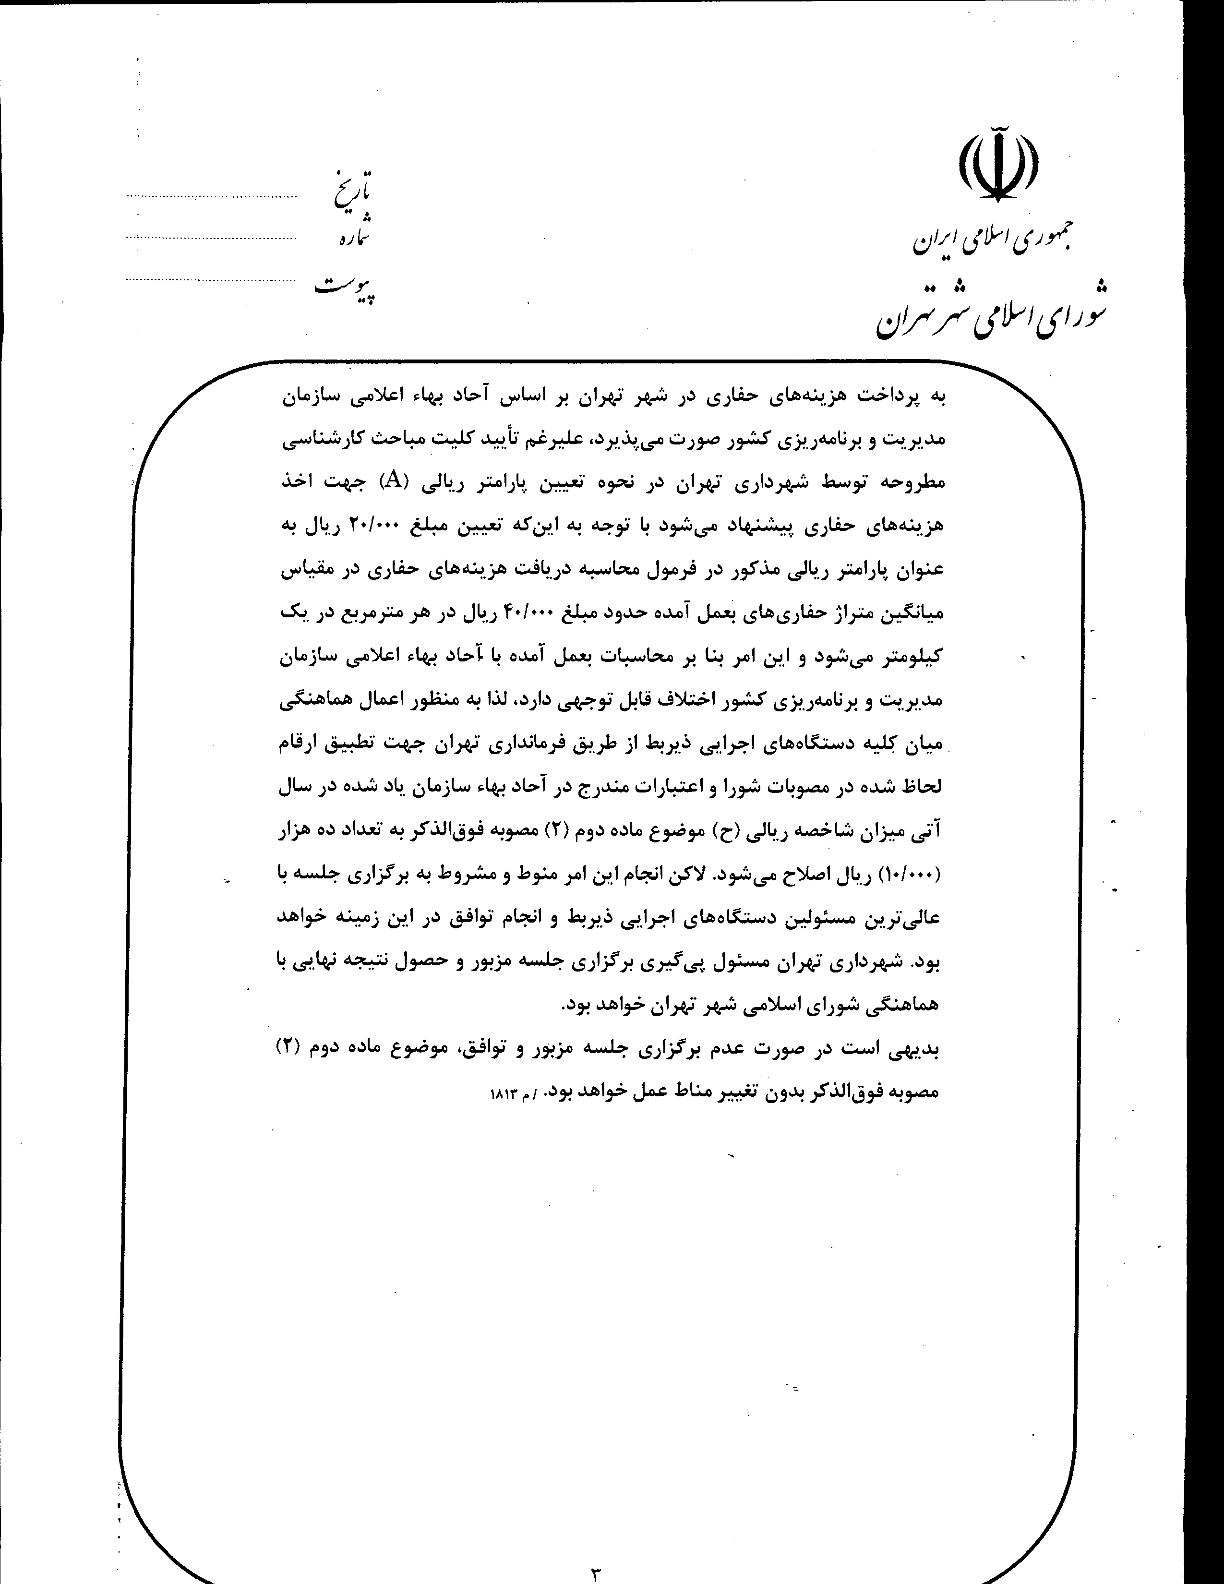 جمهوری اسلامی ایران
شورای اسلامی شهر تهران
تاریخ
شماره
پیوست
به پرداخت هزینه‌های حفاری در شهر تهران بر اساس آحاد بهاء اعلامی سازمان
مدیریت و برنامه‌ریزی کشور صورت می‌پذیرد، علیرغم تأیید کلیت مباحث کارشناسی
مطروحه توسط شهرداری تهران در نحوه تعیین پارامتر ریالی (A) جهت اخذ
هزینه‌های حفاری پیشنهاد می‌شود با توجه به این‌که تعیین مبلغ ۲۰/۰۰۰ ریال به
عنوان پارامتر ریالی مذکور در فرمول محاسبه دریافت هزینه‌های حفاری در مقیاس
میانگین متراژ حفاری‌های بعمل آمده حدود مبلغ ۴۰/۰۰۰ ریال در هر مترمربع در یک
کیلومتر می‌شود و این امر بنا بر محاسبات بعمل آمده با آحاد بهاء اعلامی سازمان
مدیریت و برنامه‌ریزی کشور اختلاف قابل توجهی دارد، لذا به منظور اعمال هماهنگی
میان کلیه دستگاه‌های اجرایی ذیربط از طریق فرمانداری تهران جهت تطبیق ارقام
لحاظ شده در مصوبات شورا و اعتبارات مندرج در آحاد بهاء سازمان یاد شده در سال
آتی میزان شاخصه ریالی (ح) موضوع ماده دوم (۲) مصوبه فوق‌الذکر به تعداد ده هزار
(۱۰/۰۰۰) ریال اصلاح می‌شود. لاکن انجام این امر منوط و مشروط به برگزاری جلسه با
عالی‌ترین مسئولین دستگاه‌های اجرایی ذیربط و انجام توافق در این زمینه خواهد
بود. شهرداری تهران مسئول پی‌گیری برگزاری جلسه مزبور و حصول نتیجه نهایی با
هماهنگی شورای اسلامی شهر تهران خواهد بود.
بدیهی است در صورت عدم برگزاری جلسه مزبور و توافق، موضوع ماده دوم (۲)
مصوبه فوق‌الذکر بدون تغییر مناط عمل خواهد بود. /م ۱۸۱۳
۳